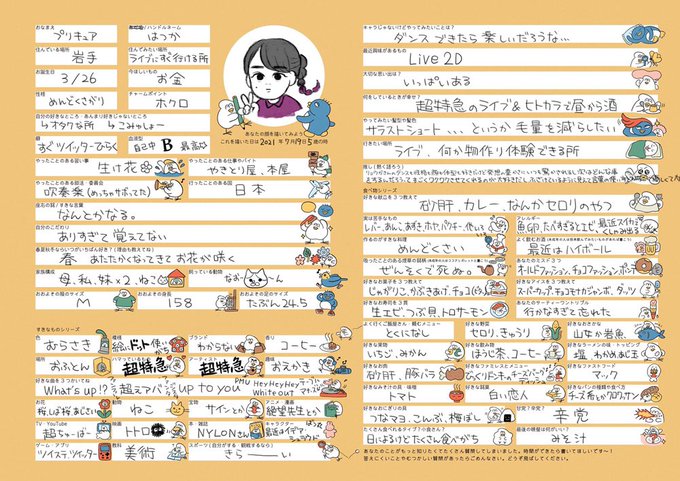 おなまえ
プリキュア
ハンドルネーム
はつか
住んでいる場所
岩手
住んでみたい場所
ライブにすぐ行ける所
お誕生日
3/26
今ほしいもの
お金
性格
めんどくさがり
チャームポイント
ホクロ
自分の好きなところ・あんまり好きじゃないところ
↳オタクな所 ↳こみゅしょー
癖
すぐツイッターひらく
血液型
自己中 B 最高
あなたの顔を描いてみよう
これを描いた日は2021年7月19日5歳の時
やったことのある習い事
生け花
やったことのある仕事やバイト
やきとり屋、本屋
やったことのある部活・委員会
吹奏楽(めっちゃサボってた)
行ったことのある国
日本
座右の銘/すきな言葉
なんとかなる。
自分のこだわり
ありすぎて覚えてない
春夏秋冬ならいつがいちばん好き?(理由も教えてね)
春 あたたかくなってきて お花が咲く
家族構成
母、私、妹×2、ねこ
飼っている動物
なおー
おおよその服のサイズ
M
おおよその身長
158
おおよその足のサイズ
たぶん24.5
すきなものシリーズ
色
むらさき
模様
ドット
ブランド
わからない
香り
コーヒー
場所
おふとん
ハマっているもの
超特急
アーティスト
超特急
趣味
おえかき
好きな曲を3つかいてね
What's up!?
超えアバ
up to you
HeyHeyHey
White out
お花
桜、しば桜、あじさい
動物
ねこ
宝物
サインとか
アニメ・漫画
絶望先生とか
TV・YouTube
超ちゃーばー
映画
トトロ
本・雑誌
NYLONさん
キャラクター
ゲーム・アプリ
ツイステ、ツイッター
教科
美術
スポーツ(自分がする・観戦するなら)
きらーーい
キャラじゃないけどやってみたいことは?
ダンス できたら楽しいだろうな…
最近興味があるもの
Live 2D
大切な思い出は?
いっぱいある
何をしているときが幸せ?
超特急のライブ&ヒトカラで昼から酒
やってみたい髪型や髪色
サラストショート、、、というか毛量を減らしたい
行きたい場所
ライブ、何か物作り体験できる所
推し(熱く語ろう)
食べ物シリーズ
好きな献立を3つ教えて
砂肝、カレー、なんかセロリのやつ
実は苦手なもの
アレルギー
魚卵
作るのがすきな料理
めんどくさい
よく飲むお酒
最近はハイボール
ぜんそくで死ぬ。
あなたのミスド3つ
オールドファッション、チョコファッション、ポンデ
好きなお菓子を3つ教えて
じゃがりこ、かぶきあげ、チョコ
好きなアイスを3つ教えて
スーパーカップ、チョコモナカジャンボ、ダッツ
好きなお寿司を3貫
生エビ、つぶ貝、トロサーモン
あなたのサーティーワントリプル
行かなすぎて忘れた
よく行くご飯屋さん・頼むメニュー
とくになし
好きな野菜
セロリ、きゅうり
好きなおさかな
山女や岩魚
好きな果物
いちご、みかん
好きな飲み物
ほうじ茶、コーヒー
好きなラーメンの味・トッピング
塩、わかめ、ねぎ玉
好きなお肉
砂肝、豚バラ
好きなファミレスとメニュー
好きなファストフード
マック
好きなみそ汁の具・味噌
トマト
好きな銘菓
白い恋人
好きなパンの種類や食べ方
チーズ系とかクロワッサン
好きなおにぎりの具
つなマヨ、こんぶ、梅ぼし
甘党?辛党?
辛党
たくさん食べるタイプ?小食さん?
日によるけどたくさん食べがち
最後の晩餐は何がいい?
みそ汁
あなたのことがもっと知りたくてたくさん質問してしまいました。時間ができたら書いてほしいです〜!
答えにくいことやむつかしい質問があったらごめんなさい。どうぞ飛ばしてください。